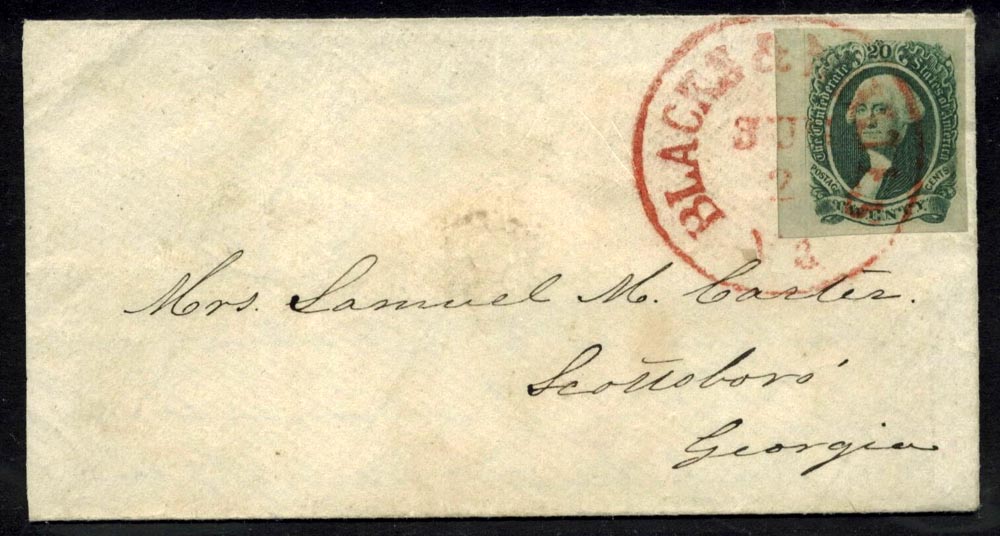 BLACK
JU
2
20
The Confederate States of America
POSTAGE CENTS
TWENTY
Mrs. Samuel M. Carter.
Scottsboro'
Georgia